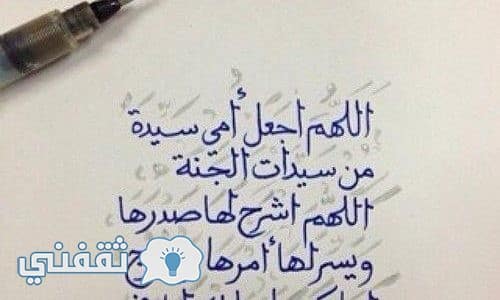 اللهم اجعل أمي سيدة
من سيدات الجنة
اللهم اشرح لها صدرها
ويسر لها أمرها
ثقفني